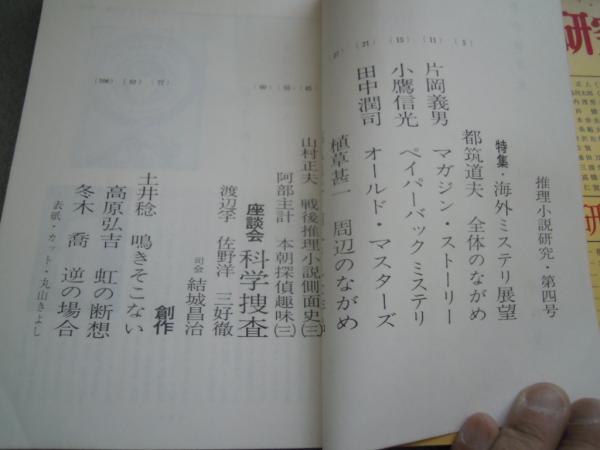 推理小説研究・第四号
特集・海外ミステリ展望
都筑道夫 全体のながめ (5)
片岡義男 マガジン・ストーリー (11)
小鷹信光 ペイパーバックミステリ (15)
田中潤司 オールド・マスターズ (21)
植草甚一 周辺のながめ
山村正夫 戦後推理小説側面史(三)
阿部主計 本朝探偵趣味(三)
座談会 科学捜査
渡辺孚 佐野洋 三好徹
司会 結城昌治
創作
土井稔 鳴きそこない (77)
高原弘吉 虹の断想
冬木喬 逆の場合 (106)
表紙・カット・丸山きよし
研
研